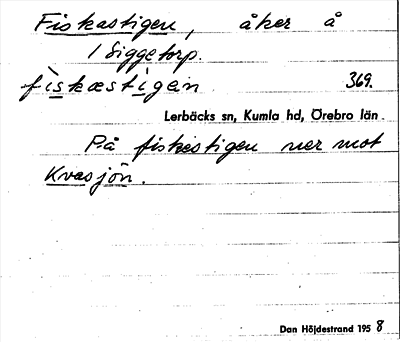 Fiskastigen, åker å
1 Siggetorp.
fìskæstigæn 369.
Lerbäcks sn, Kumla hd, Örebro län.
På fiskestigen ner mot
Kvasjön.
Dan Höjdestrand 1958